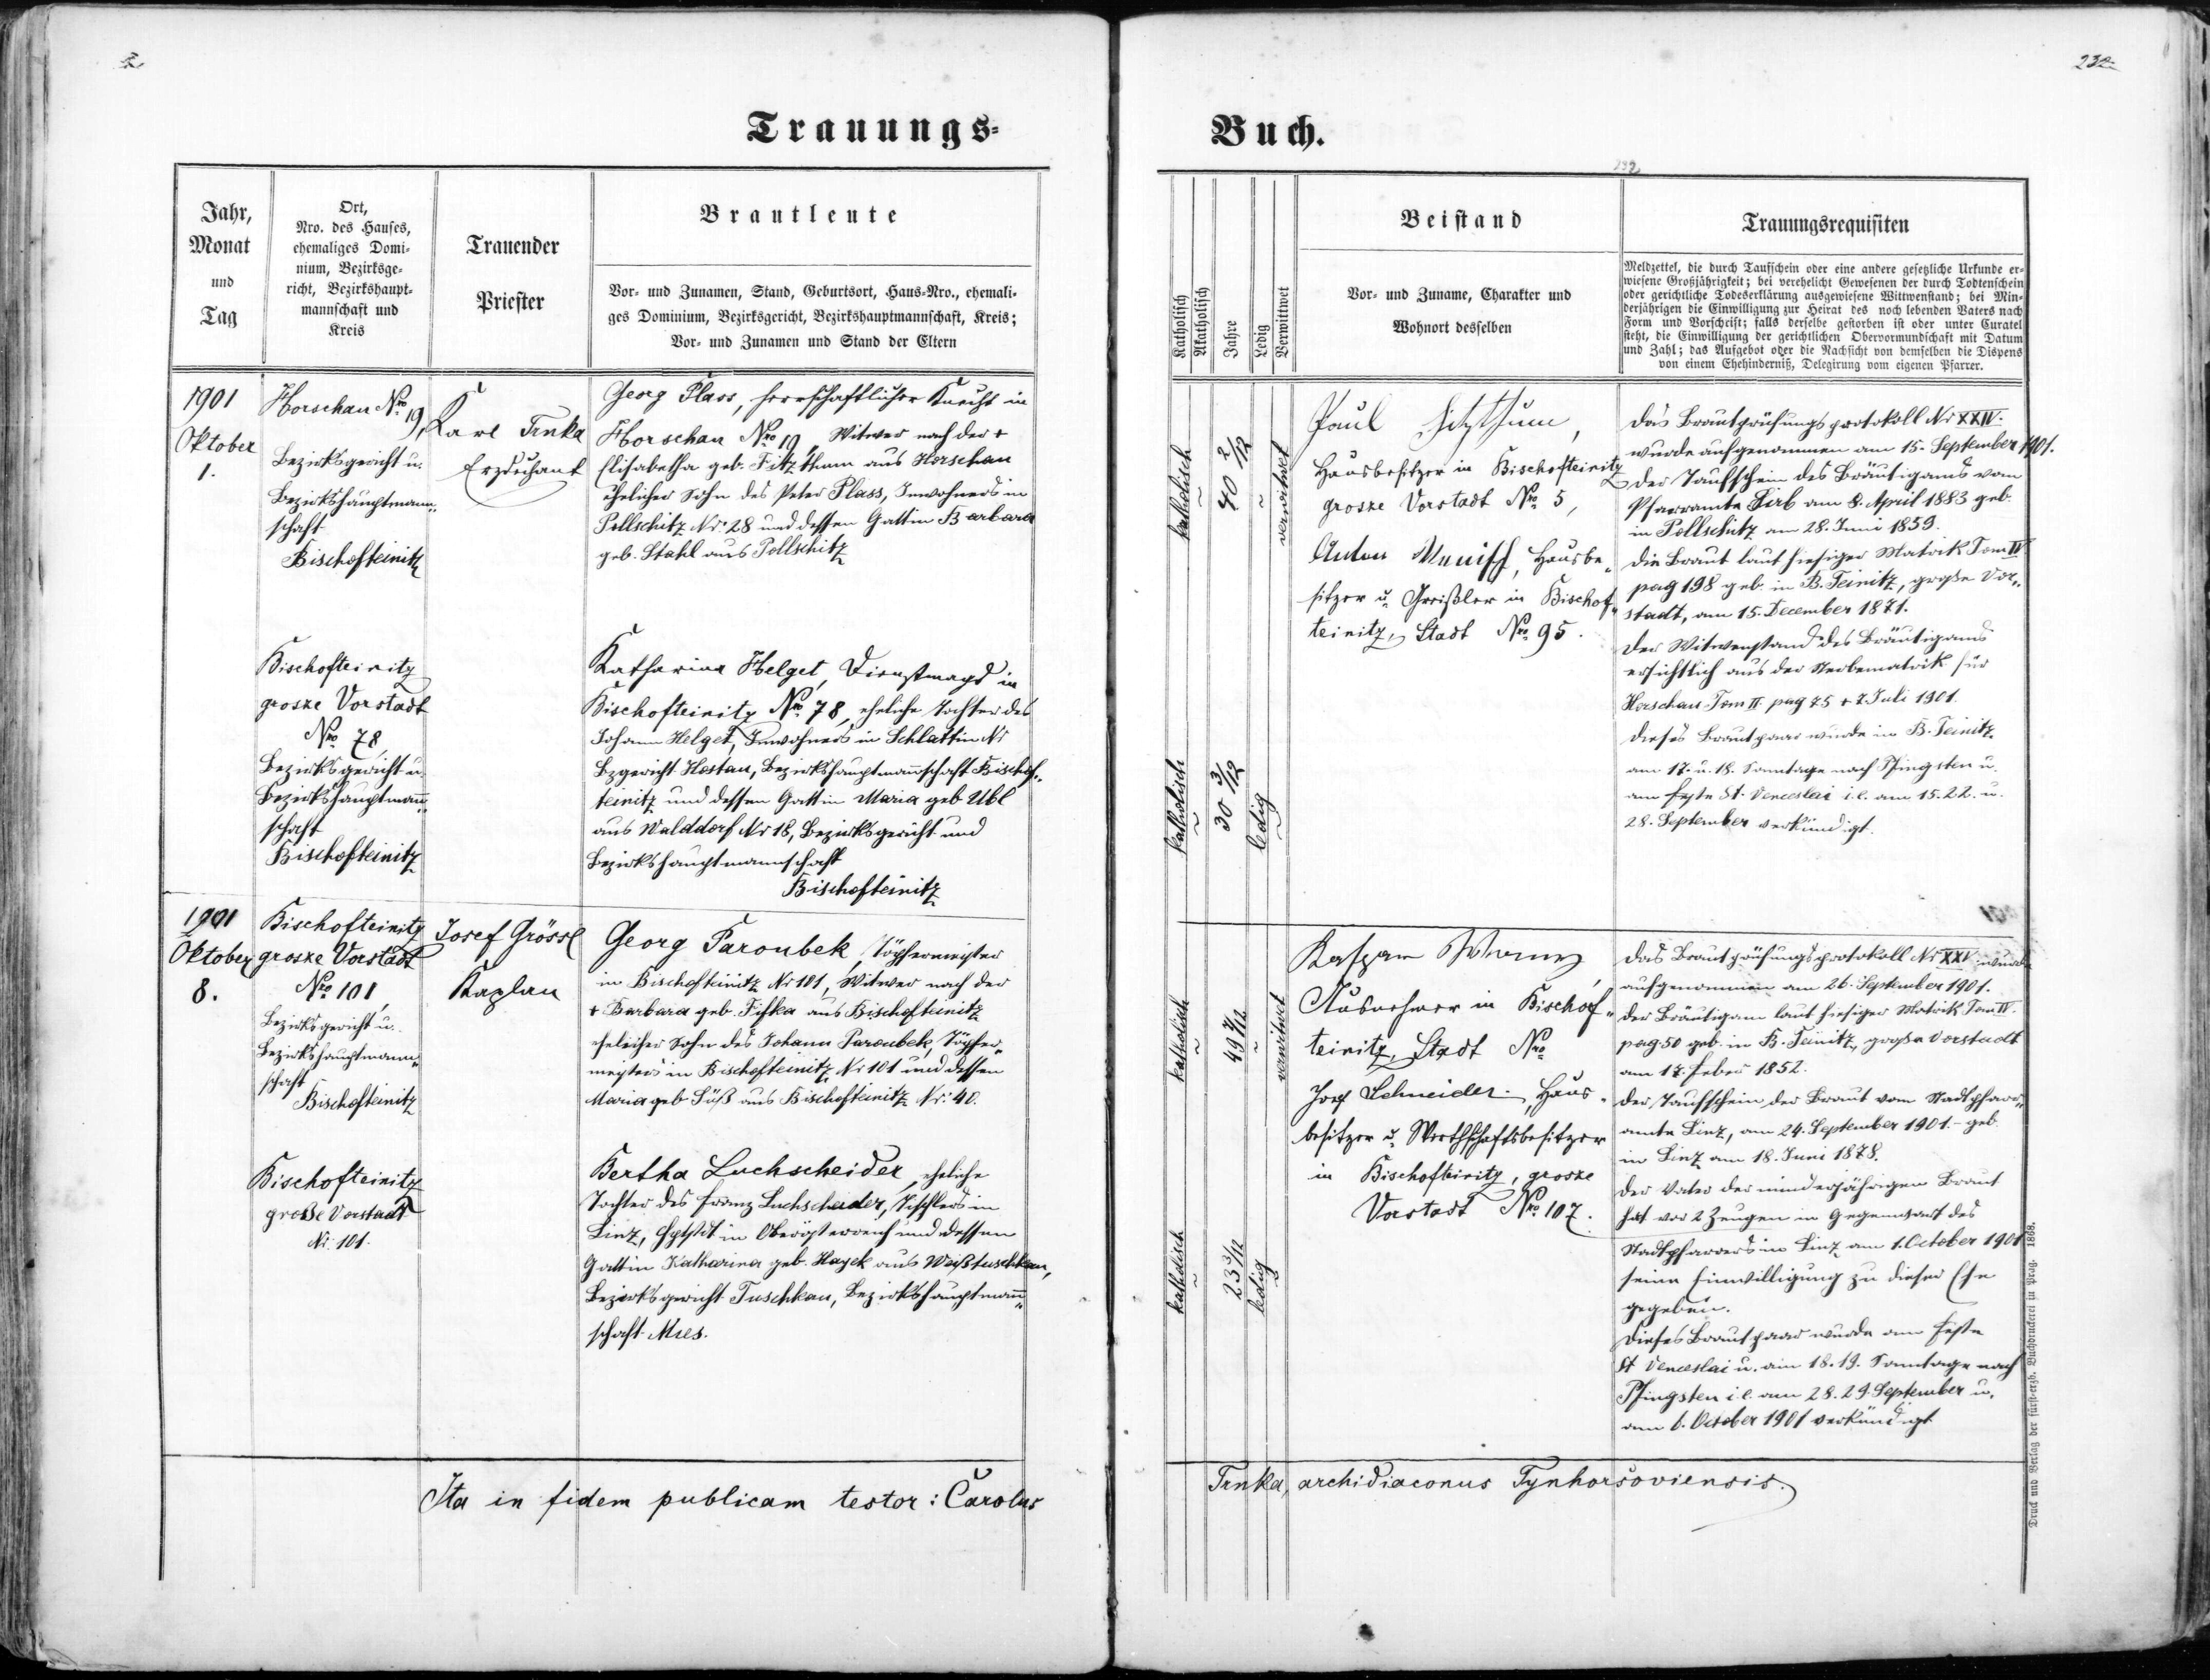 232
Trauungs-
Buch.
232
Jahr,
Monat
und
Tag
Ort,
Nro. des Hauses,
ehemaliges Domi-
nium, Bezirksge-
richt, Bezirkshaupt-
mannschaft und
Kreis
Trauender
Priester
Brautleute
Vor- und Zunamen, Stand, Geburtsort, Haus-Nro., ehemali-
ges Dominium, Bezirksgericht, Bezirkshauptmannschaft, Kreis;
Vor- und Zunamen und Stand der Eltern
Katholisch
Akatholisch
Jahre
Ledig
Verwittwet
Beistand
Vor- und Zuname, Charakter und
Wohnort desselben
Trauungsrequisiten
Meldzettel, die durch Taufschein oder eine andere gesetzliche Urkunde er-
wiesene Großjährigkeit; bei verehelicht Gewesenen der durch Todtenschein
oder gerichtliche Todeserklärung ausgewiesene Wittwenstand; bei Min-
derjährigen die Einwilligung zur Heirat des noch lebenden Vaters nach
Form und Vorschrift; falls derselbe gestorben ist oder unter Curatel
steht, die Einwilligung der gerichtlichen Obervormundschaft mit Datum
und Zahl; das Aufgebot oder die Nachsicht von demselben die Dispens
von einem Ehehinderniß, Delegirung vom eigenen Pfarrer.
1901
Oktober
1.
Horschau Nro 19,
Bezirksgericht u.
Bezirkshauptmann„
schaft
Bischofteinitz
Karl Trnka
Erzdechant
Georg Plass, herrschaftlicher Knecht in
Horschau Nro 19, Witwer nach der +
Elisabetha geb. Fitzthum aus Horschau
ehelicher Sohn des Peter Plass, Inwohners in
Pollschitz Nr. 28 und dessen Gattin Barbara
geb. Stahl aus Pollschitz
katholisch
40 2/12
verwitwet
Paul Fitzthum,
Hausbesitzer in Bischofteinitz
grosze Vorstadt Nro 5,
Anton Wenisch, Hausbe„
sitzer u. Greißler in Bischof„
teinitz, Stadt Nro 95.
Das Brautprüfungsprotokoll Nr XXIV.
wurde aufgenommen am 15. September 1901.
Der Taufschein des Bräutigams vom
Pfarramte Sirb am 8. April 1883 geb.
in Pollschitz am 28. Juni 1859.
Die Braut laut hiesiger Matrik Tom IV
pag 198 geb. in B. Teinitz, große Vor„
stadt, am 15. December 1871.
Der Witwenstand des Bräutigams
ersichtlich aus der Sterbematrik für
Horschau Tom II. pag 75 + 7. Juli 1901.
Dieses Brautpaar wurde in B. Teinitz
am 17. u. 18. Sonntage nach Pfingsten u.
am Feste St. Venceslai i. e. am 15. 22. u.
28. September verkündigt.
Bischofteinitz
grosze Vorstadt
Nro 78,
Bezirksgericht u.
Bezirkshauptmann„
schaft
Bischofteinitz
Katharina Helget, Dienstmagd in
Bischofteinitz Nro 78, eheliche Tochter des
Johann Helget, Inwohners in Schlattin Nr
Bzgericht Hostau, Bezirkshauptmannschaft Bischof„
teinitz und dessen Gattin Maria geb Übl
aus Walddorf Nr 18, Bezirksgericht und
Bezirkshauptmannschaft
Bischofteinitz
katholisch
30 3/12
ledig
1901
Oktober
8.
Bischofteinitz
grosze Vorstadt
Nro 101,
Bezirksgericht u.
Bezirkshauptmann„
schaft
Bischofteinitz
Josef Grössl
Kaplan
Georg Paroubek, Töpfermeister
in Bischofteinitz Nr 101, Witwer nach der
+ Barbara geb. Fifka aus Bischofteinitz
ehelicher Sohn des Johann Paroubek, Töpfer„
meisters in Bischofteinitz Nr 101 und dessen
Maria geb Süß aus Bischofteinitz Nr. 40.
katholisch
verwitwet
Kaspar
in Bischof„
teinitz, Stadt Nro
Josef Schneider, Haus„
besitzer u. Wirthschaftsbesitzer
in Bischofteinitz, grosze
Vorstadt Nro 107.
Das Brautprüfungsprotokoll Nr XXV wurde
aufgenommen am 26. September 1901.
Der Bräutigam laut hiesiger Matrik Tom IV.
pag 50 geb. in B. Teinitz, große Vorstadt
am 17. Feber 1852.
Der Taufschein der Braut vom Stadtpfarr„
amte Linz, am 24. September 1901. - geb.
in Linz am 18. Juni 1878.
Der Vater der minderjährigen Braut
hat vor 2 Zeugen in Gegenwart des
Stadtpfarrers in Linz am 1. October 1901
seine Einwilligung zu dieser Ehe
gegeben.
Dieses Brautpaar wurde am Feste
St Venceslai u. am 18. 19. Sonntage nach
Pfingsten i. e. am 28. 29. September u.
am 6. October 1901 verkündigt
Bischofteinitz
große Vorstadt
Nr. 101.
Bertha Luchscheider, eheliche
Tochter des Franz Luchscheider, Tischlers in
Linz, Hptstdt in Oberösterreich und dessen
Gattin Katharina geb. Hayek aus Weißtuschkau,
Bezirksgericht Tuschkau, Bezirkshauptmann„
schaft Mies.
katholisch
23 3/12
ledig
Ita in fidem publicam testor: Carolus
Trnka, archidiaconus Tynhorsoviensis.
Druck und Verlag der fürst-erzb. Buchdruckerei in Prag. 1868.